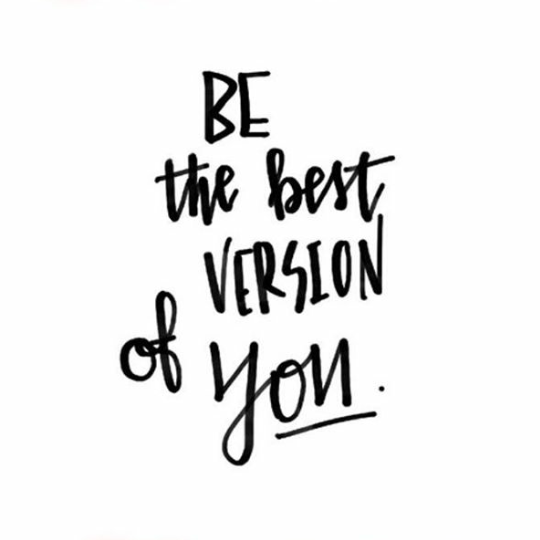 BE
the best
VERSION
of you.